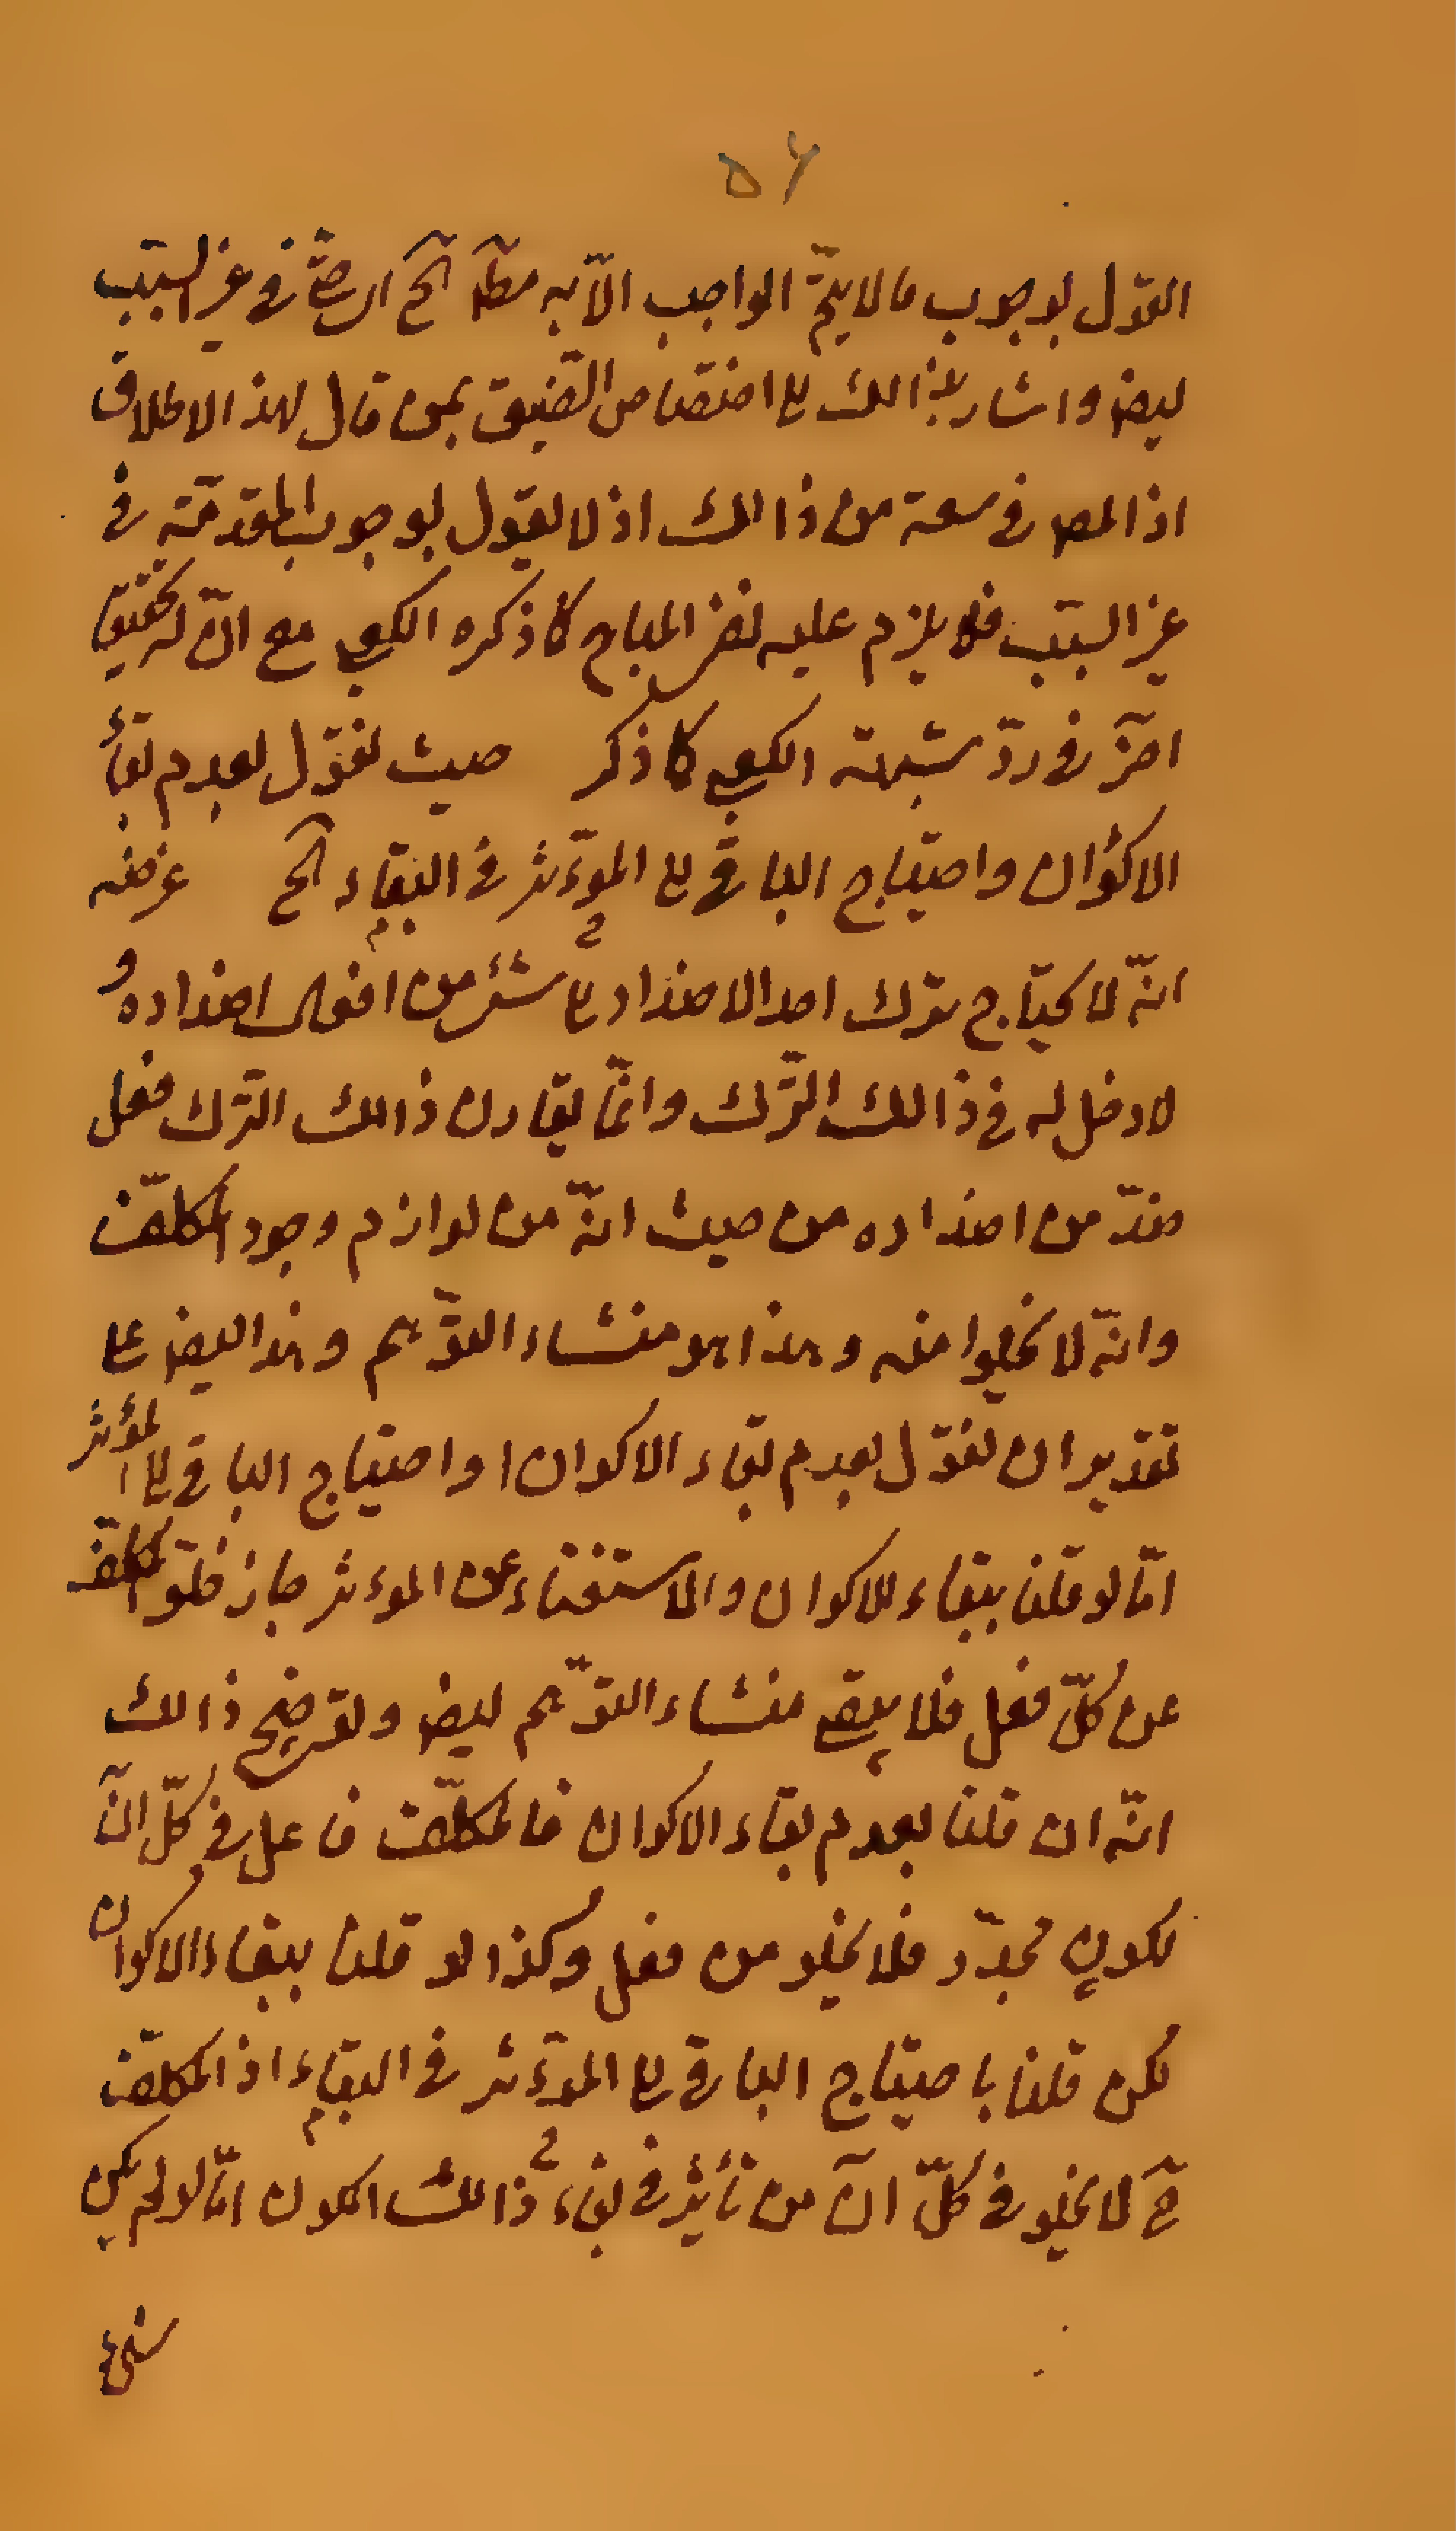 ٥٦
القول بوجوب ما لا يتمّ الواجب الّا به مطلقا الخ اى حتّى فى غير السبب
ايضا واشار بذالك الى اختصاص التضيق بمن قال لهذ الاطلاق
اذ المصه فى سعة من ذالك اذ لا يقول بوجوب المقدّمة فى
غير السبب فلا يلزم عليه نفى المباح كما ذكره الكعبى مع انّ له تحقيق
آخر فى ردّ شبهة الكعبى كما ذكر حيث نقول بعدم بقاء
الاكوان واحتياج الباقى الى المؤثر فى البقاء الخ غرضه
انّه لا يحتاج ترك احد الاضداد الى شئ من افعال اضداده و
لا دخل له فى ذالك الترك وانّما يقارن ذالك الترك فعل
ضدّ من اضداده من حيث انّه من لوازم وجود المكلّف
وانّه لا يخلوا منه وهذا هو منشاء التوّهم وهذا ايضا على
تقدير ان نقول بعدم بقاء الاكوان او احتياج الباقى الى المؤثر
امّا لو قلنا ببقاء الاكوان والاستغناء عن المؤثر جاز خلوّ المكلّف
عن كلّ فعل فلا يبقى منشاء التوّهم ايضا وتوضيح ذالك
انّه ان قلنا بعدم بقاء الاكوان فالمكلّف فاعل فى كلّ آن
لكون مجدّد فلا يخلو من فعل وكذا لو قلنا ببقاء الاكوان
لكن قلنا باحتياج الباقى الى المؤثر فى البقاء اذ المكلّف
ح لا يخلو فى كلّ آن من تأثير فى بقاء ذالك الكون امّا لو لم يكن